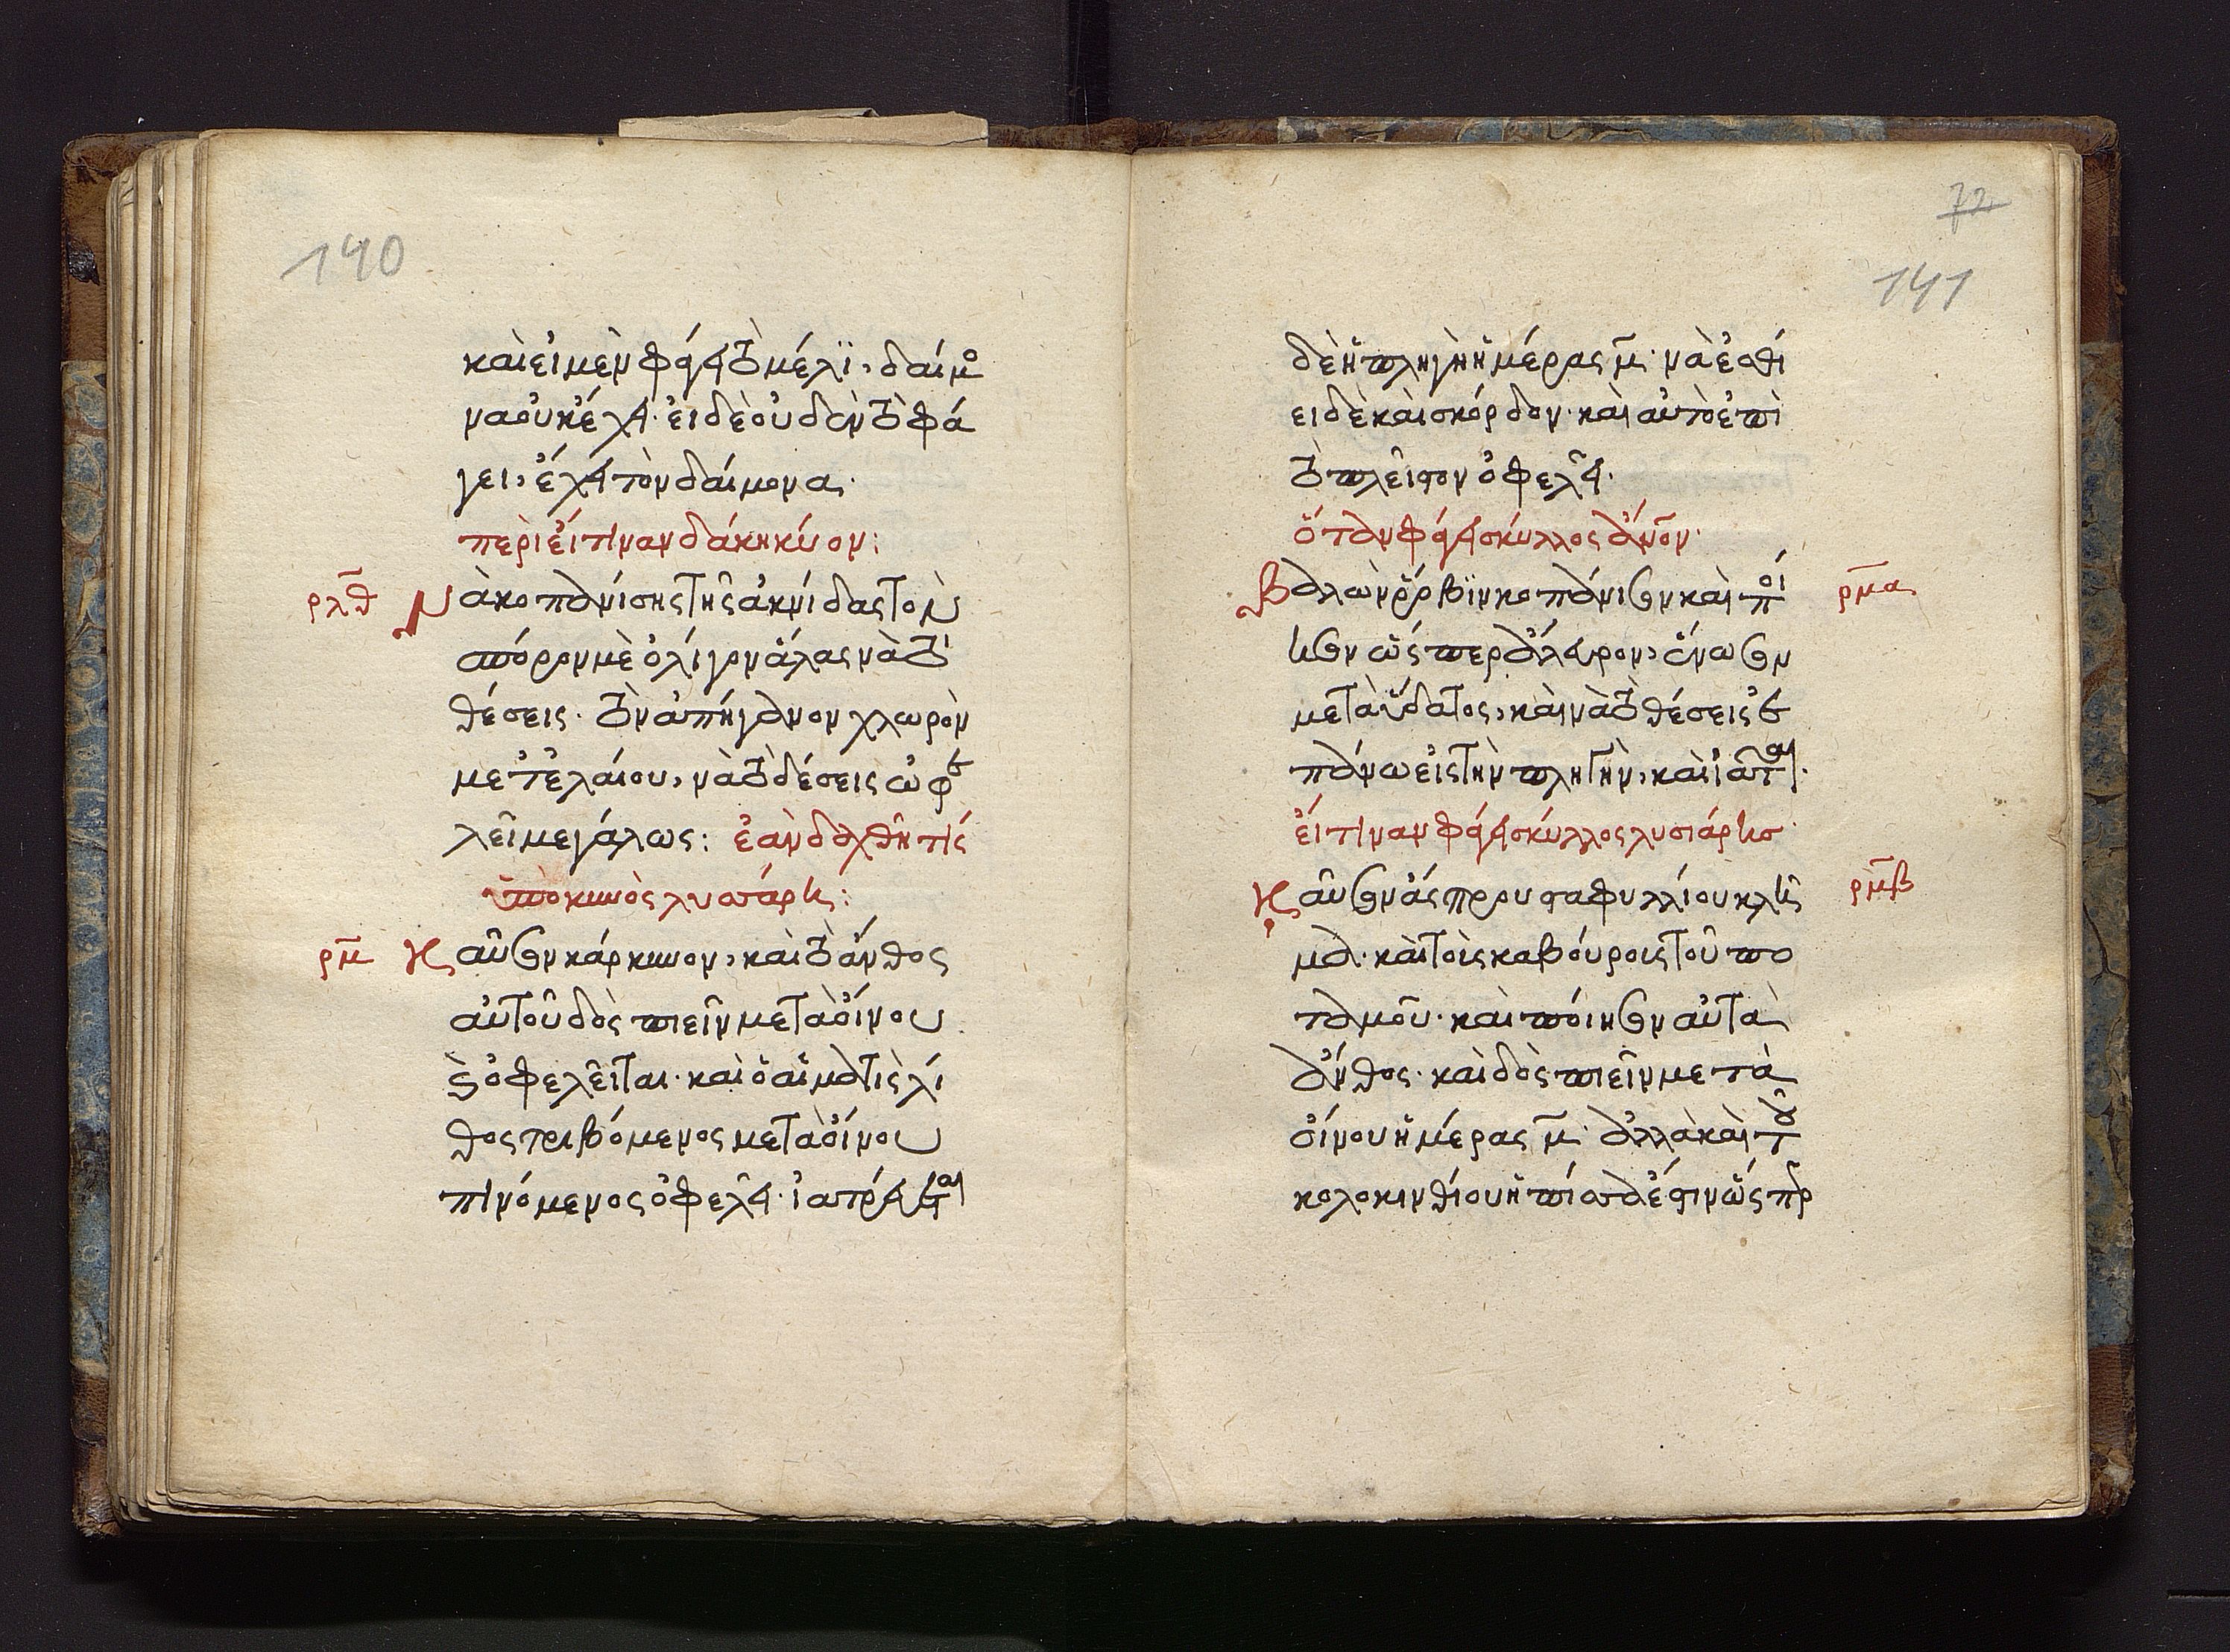 140
καὶ εἰ μὲν φάγει τὸ μέλϊ, δαίμο
να οὐκ ἔχει. εἰ δὲ οὐδὲν τὸ φά
γει, ἔχει τὸν δαίμονα.
περὶ εἴ τιναν δάκη κύον:
ρλθ Νὰ κοπανίσης τῆς ἀκνίδας τὸν
σπόρον μὲ ὀλίγον ἅλας νὰ τὸ
θέσεις. τὸν ἀπήγανον χλωρὸν
μετ ἐλαίου, νὰ τὸ δέσεις ὠφε
λεῖ μεγάλως: ἐὰν δαχθῆ τίς
ὑπὸ κυνὸς λυσιάρη:
ρμ Καῦσον κάρκινον, καὶ τὸ ἄνθος
αὐτοῦ δὸς πιεῖν μετὰ οἴνου
καὶ ὀφελεῖται. καὶ ὁ αἱματὶς λί
θος τριβόμενος μετὰ οἴνου
πινόμενος ὀφελεῖ. ἰατρεύεται
72
141
δὲ ἡ πληγὴ ἡμέρας μ. νὰ ἐσθί
ει δὲ καὶ σκόρδον. καὶ αὐτὸ ἐπὶ
τὸ πλεῖστον ὀφελεῖ.
ὅταν φάγει σκύλλος ἄνον.
Βαλὼν ῥόβϊν κοπάνισον καὶ ποί ρμα
ησον ὥσπερ ἄλευρον, ἕνωσον
μετὰ ὕδατος, καὶ νὰ τὸ θέσεις ἐ
πάνω εἰς τὴν πληγὴν, καὶ ἰᾶται.
εἴ τιναν φάγει σκύλλος λυσιάρησ
Καῦσον ἄσπρου σταφυλλίου κλῆ ρμβ
μα. καὶ τοὶς καβούροις τοῦ πο
ταμοῦ. καὶ ποίησον αὐτὰ
ἄνθος. καὶ δὸς πιεῖν μετὰ
οἴνου ἡμέρας μ. ἀλλὰ καὶ τοῦ
κολοκινθίου ἡ πίστα ἔστιν ὥσπερ